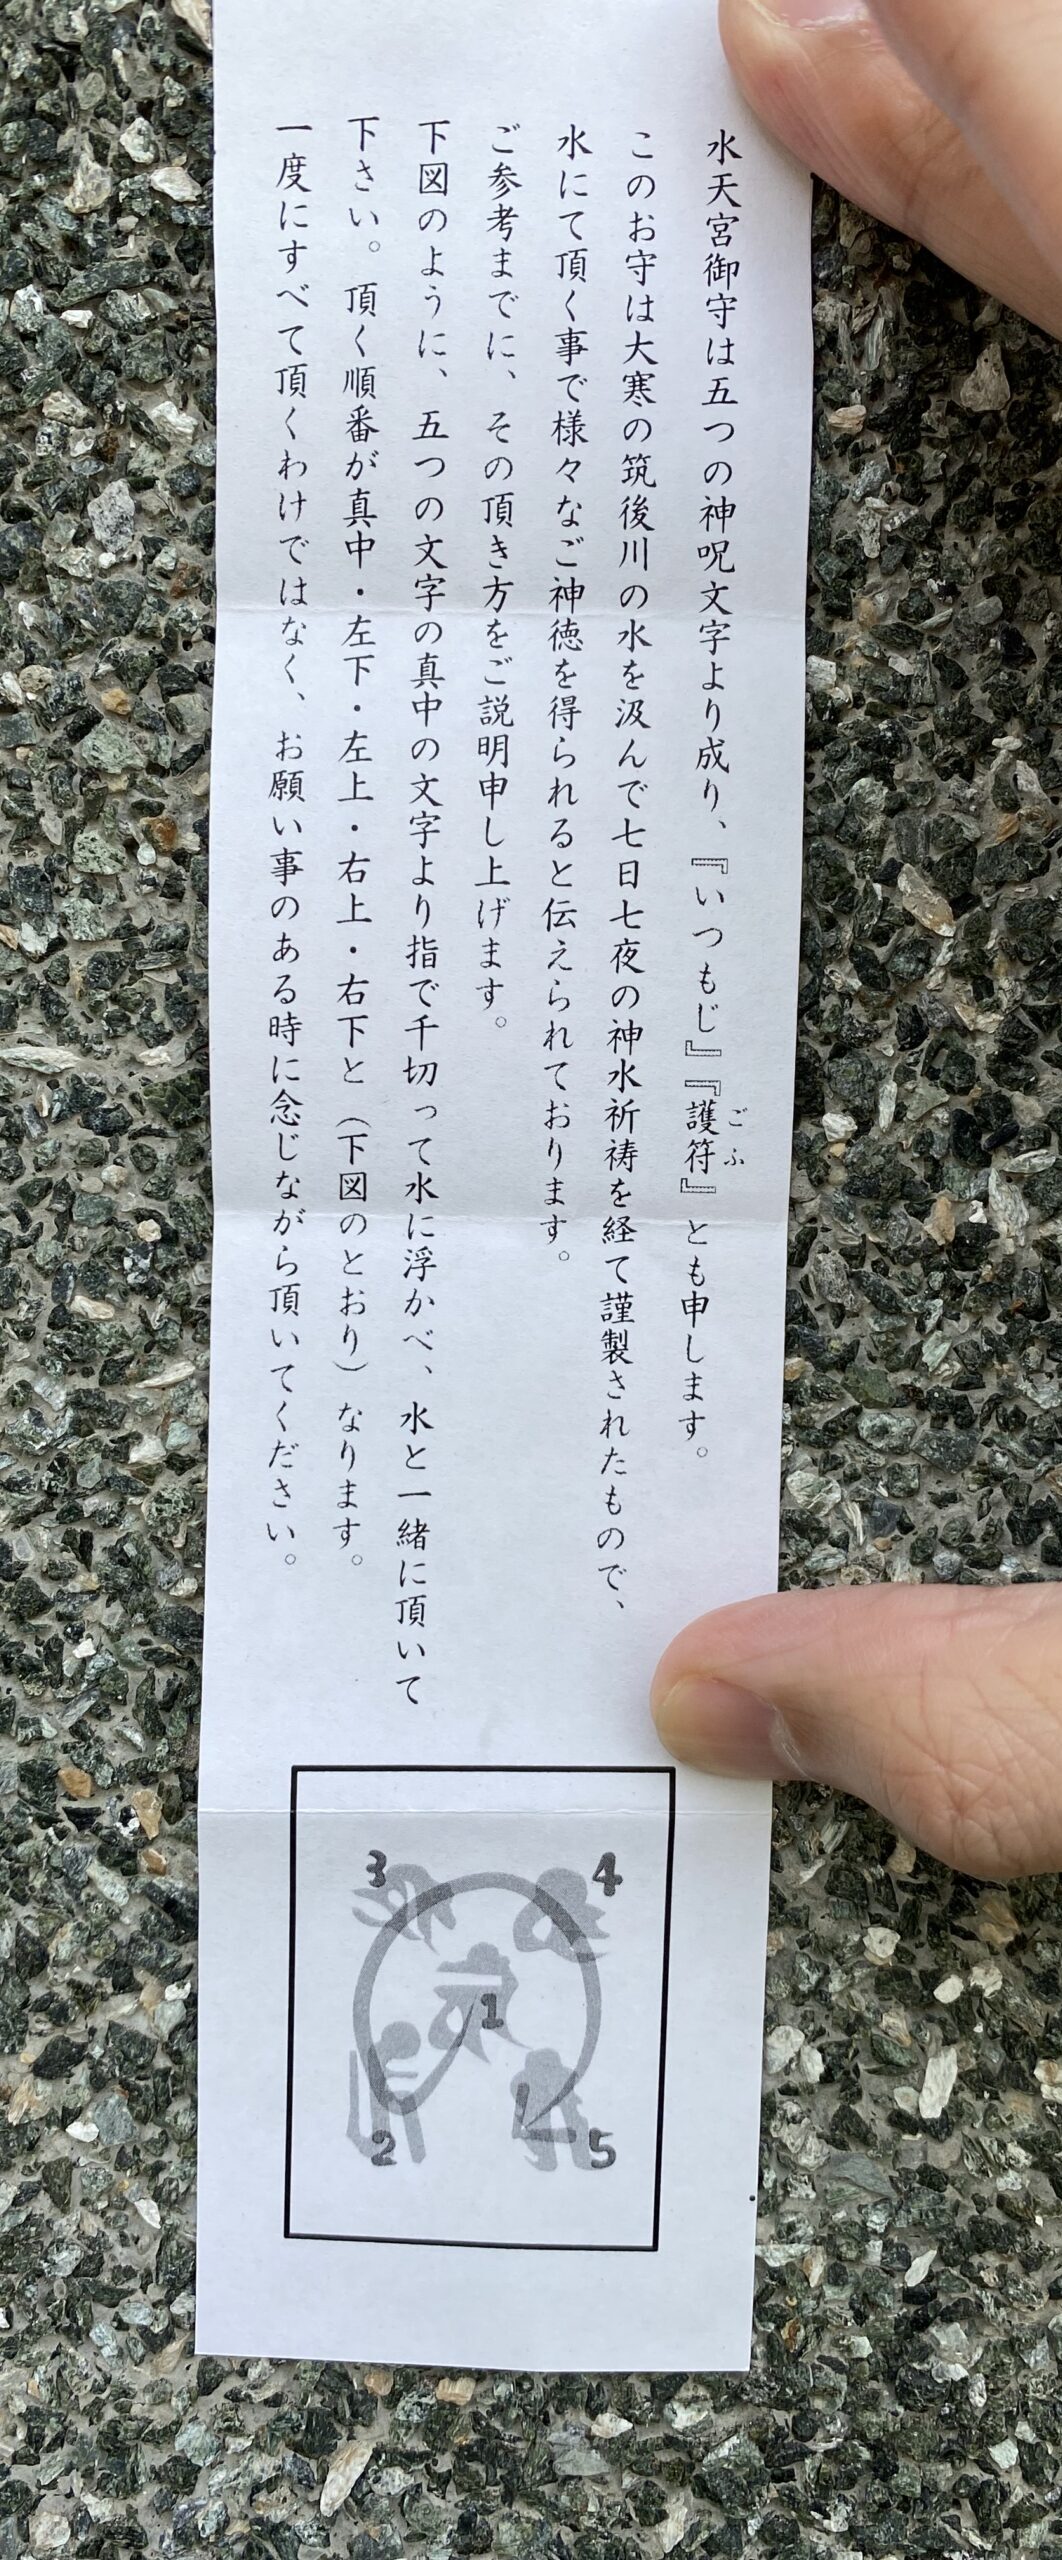 水天宮御守は五つの神呪文字より成り、『いつもじ』『護符』とも申します。
ごふ
このお守は大寒の筑後川の水を汲んで七日七夜の神水祈祷を経て謹製されたもので、
水にて頂く事で様々なご神徳を得られると伝えられております。
ご参考までに、その頂き方をご説明申し上げます。
下図のように、五つの文字の真中の文字より指で千切って水に浮かべ、水と一緒に頂いて
下さい。頂く順番が真中・左下・左上・右上・右下と（下図のとおり）なります。
一度にすべて頂くわけではなく、お願い事のある時に念じながら頂いてください。
3
4
1
2
5